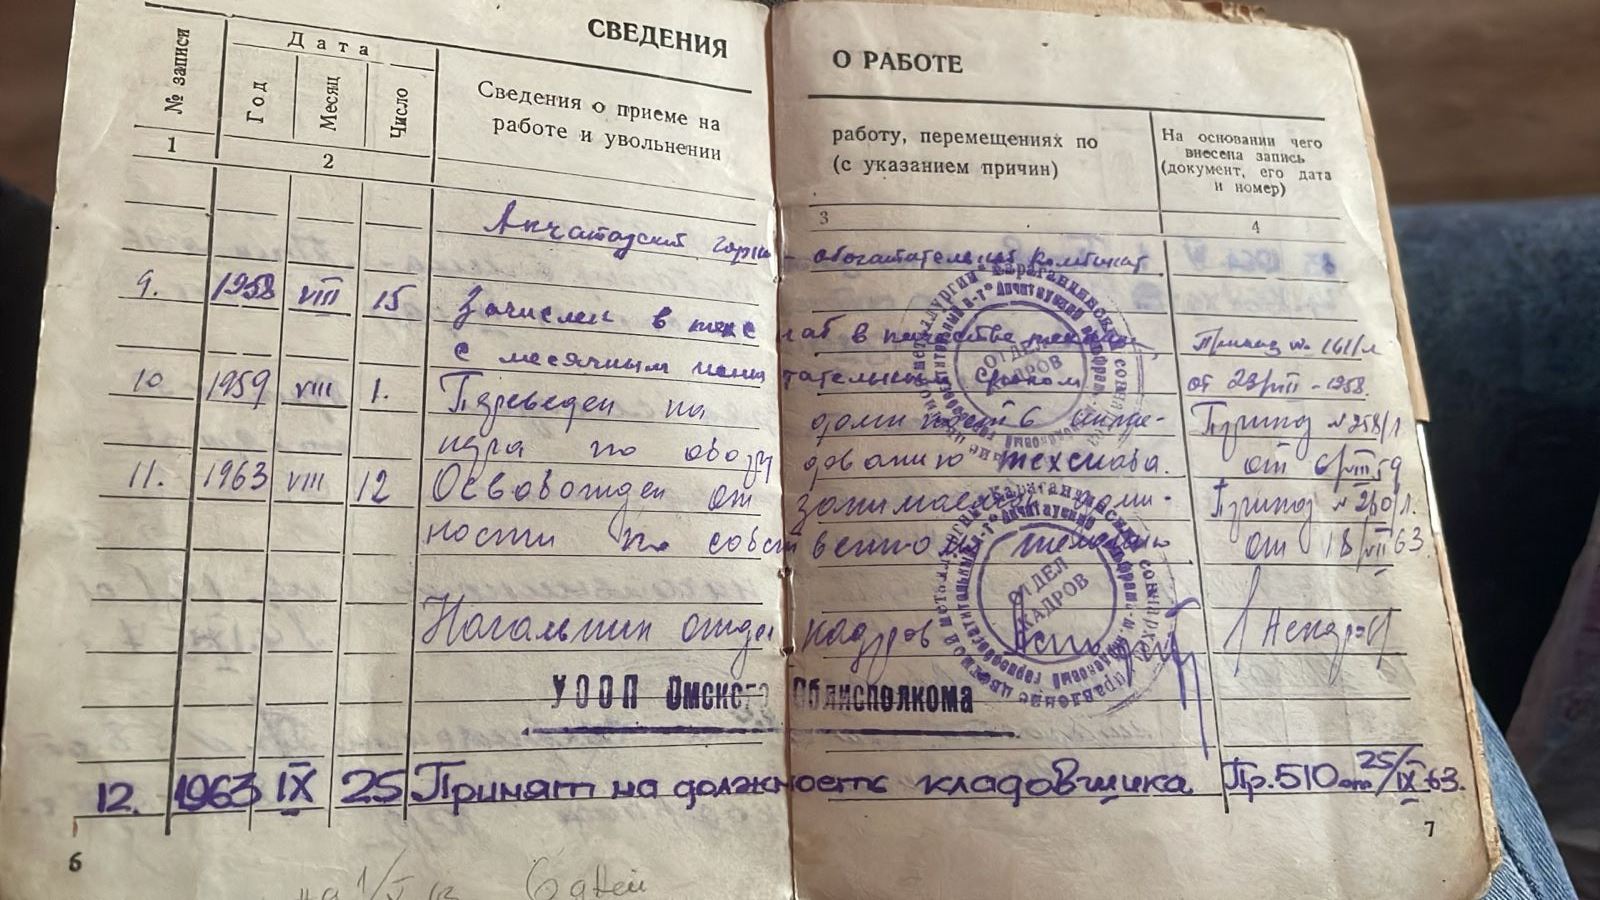 СВЕДЕНИЯ О РАБОТЕ
№ записи
Дата
Год
Месяц
Число
Сведения о приеме на работу, перемещениях по
работе и увольнении (с указанием причин)
На основании чего
внесена запись
(документ, его дата
и номер)
1
2
3
4
Акчатауский горно-обогатательный комбинат
9. 1958 VIII 15 Зачислен в техснаб в качестве Приказ № 161/л
с месячным испытательным сроком от 23/VIII-1958.
10 1959 VIII 1. Переведен на должность инже- Приказ №258/л
нера по оборудованию техснаба. от 6/VIII 59
11. 1963 VIII 12 Освобожден от занимаемой долж- Приказ №260/л.
ности по собственному желанию от 18/VII 63.
Начальник отдела кадров
ОТДЕЛ КАДРОВ
ОТДЕЛ КАДРОВ
УООП Омского Облисполкома
12. 1963 IX 25 Принят на должность кладовщика Пр.510 от 25/IX 63.
6
7
6 дней